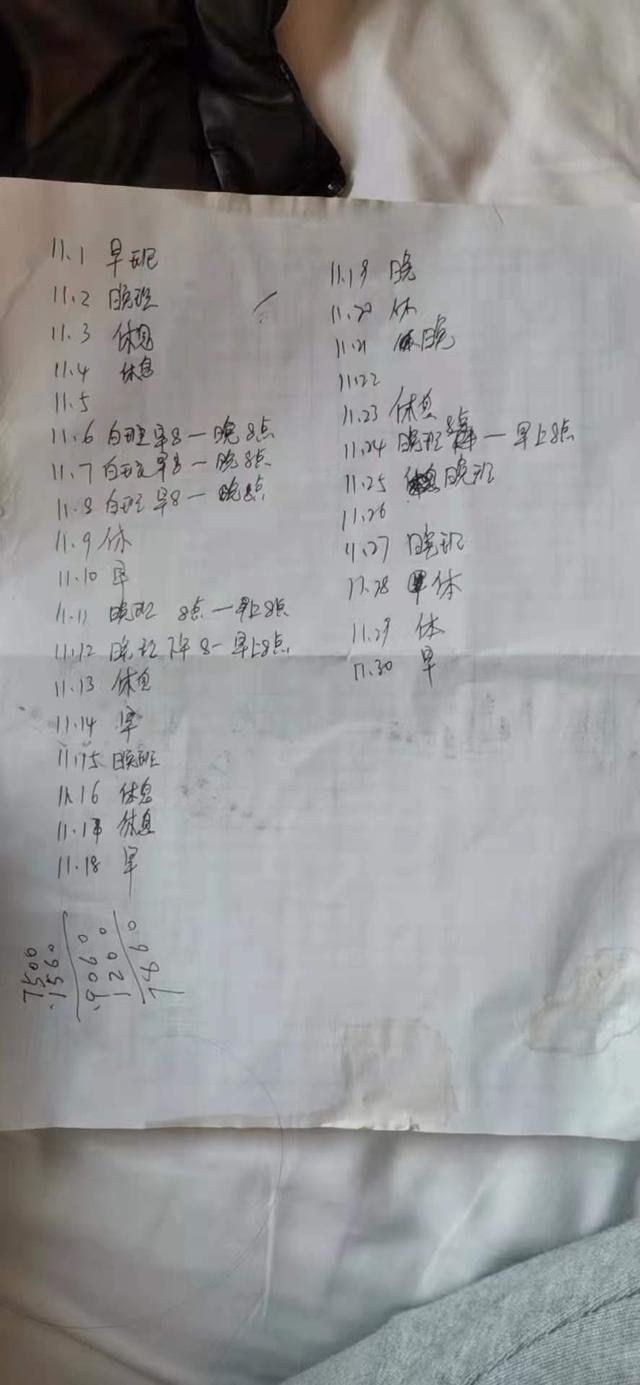 11.1 早班
11.2 晚班
11.3 休息
11.4 休息
11.5
11.6 白班早8一晚8点
11.7 白班早8一晚8点
11.8 白班早8一晚8点
11.9 休
11.10 早
11.11 晚班 8点一早上8点
11.12 晚班 8一早上8点
11.13 休息
11.14 早
11.15 晚班
11.16 休息
11.17 休息
11.18 早
11.19 晚
11.20 休
11.21 晚
11.22
11.23 休息
11.24 晚班8点一早上8点
11.25 晚班
11.26
11.27 晚班
11.28 休
11.29 休
11.30 早
7500
1560